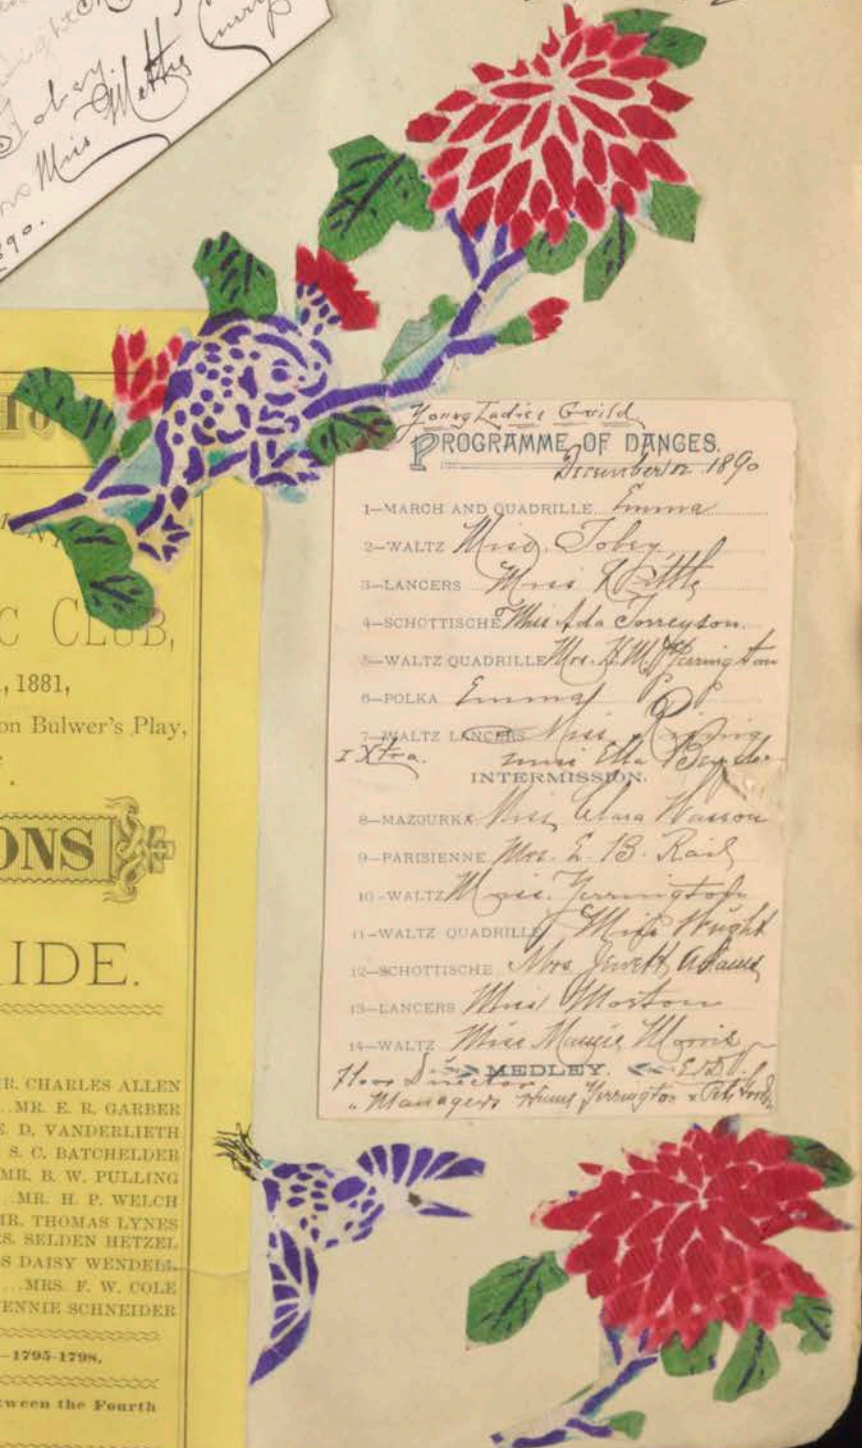 Tobey
Miss Mattie Curry
1890.
C CLUB,
, 1881,
on Bulwer's Play,
ONS
IDE.
MR. CHARLES ALLEN
MR. E. R. GARBER
E. D. VANDERLIETH
S. C. BATCHELDER
MR. B. W. PULLING
MR. H. P. WELCH
MR. THOMAS LYNES
S. SELDEN HETZEL
S DAISY WENDELL
MRS. F. W. COLE
ENNIE SCHNEIDER
—1795-1798.
tween the Fourth
Young Ladies Guild
PROGRAMME OF DANCES.
December 12 1890
1—MARCH AND QUADRILLE Emma
2—WALTZ Miss. Tobey
3—LANCERS Miss
4—SCHOTTISCHE Miss Ada Torreyson.
5—WALTZ QUADRILLE Mrs. H. M. Yerrington
6—POLKA Emma
7—WALTZ LANCERS Miss
1 Xtra. Miss Ella
INTERMISSION.
8—MAZOURKA Miss Clara Wasson
9—PARISIENNE Mrs. E. B. Rail
10—WALTZ Miss. Yerrington
11—WALTZ QUADRILLE Miss Wright
12—SCHOTTISCHE Mrs Jewett Adams
13—LANCERS Miss Morton
14—WALTZ Miss Mamie Morris
MEDLEY.
Floor Director E. D. V.
" Managers Yerrington &